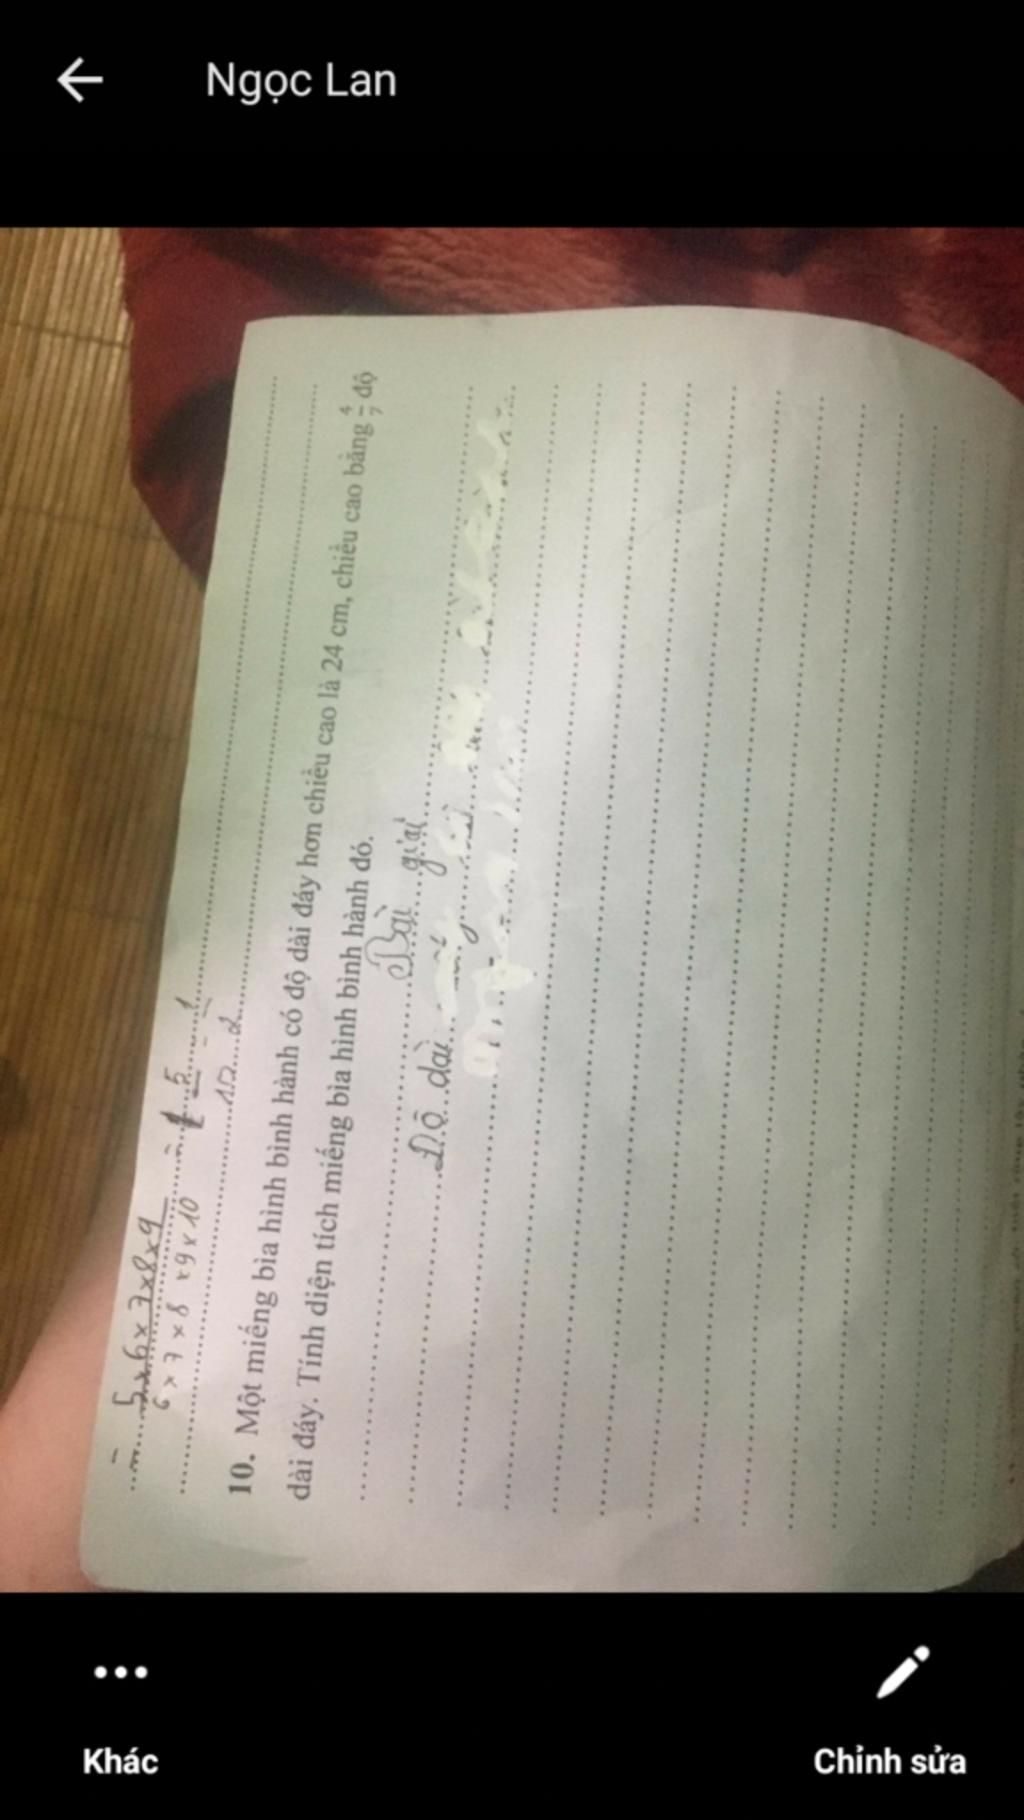 Ngọc Lan
= 5x6x7x8x9
6 x 7 x 8 x 9 x 10
= 5 = 1
10 2
10. Một miếng bìa hình bình hành có độ dài đáy hơn chiều cao là 24 cm, chiều cao bằng 4/7 độ
dài đáy. Tính diện tích miếng bìa hình bình hành đó.
Bài giải
Độ dài
Khác
Chỉnh sửa